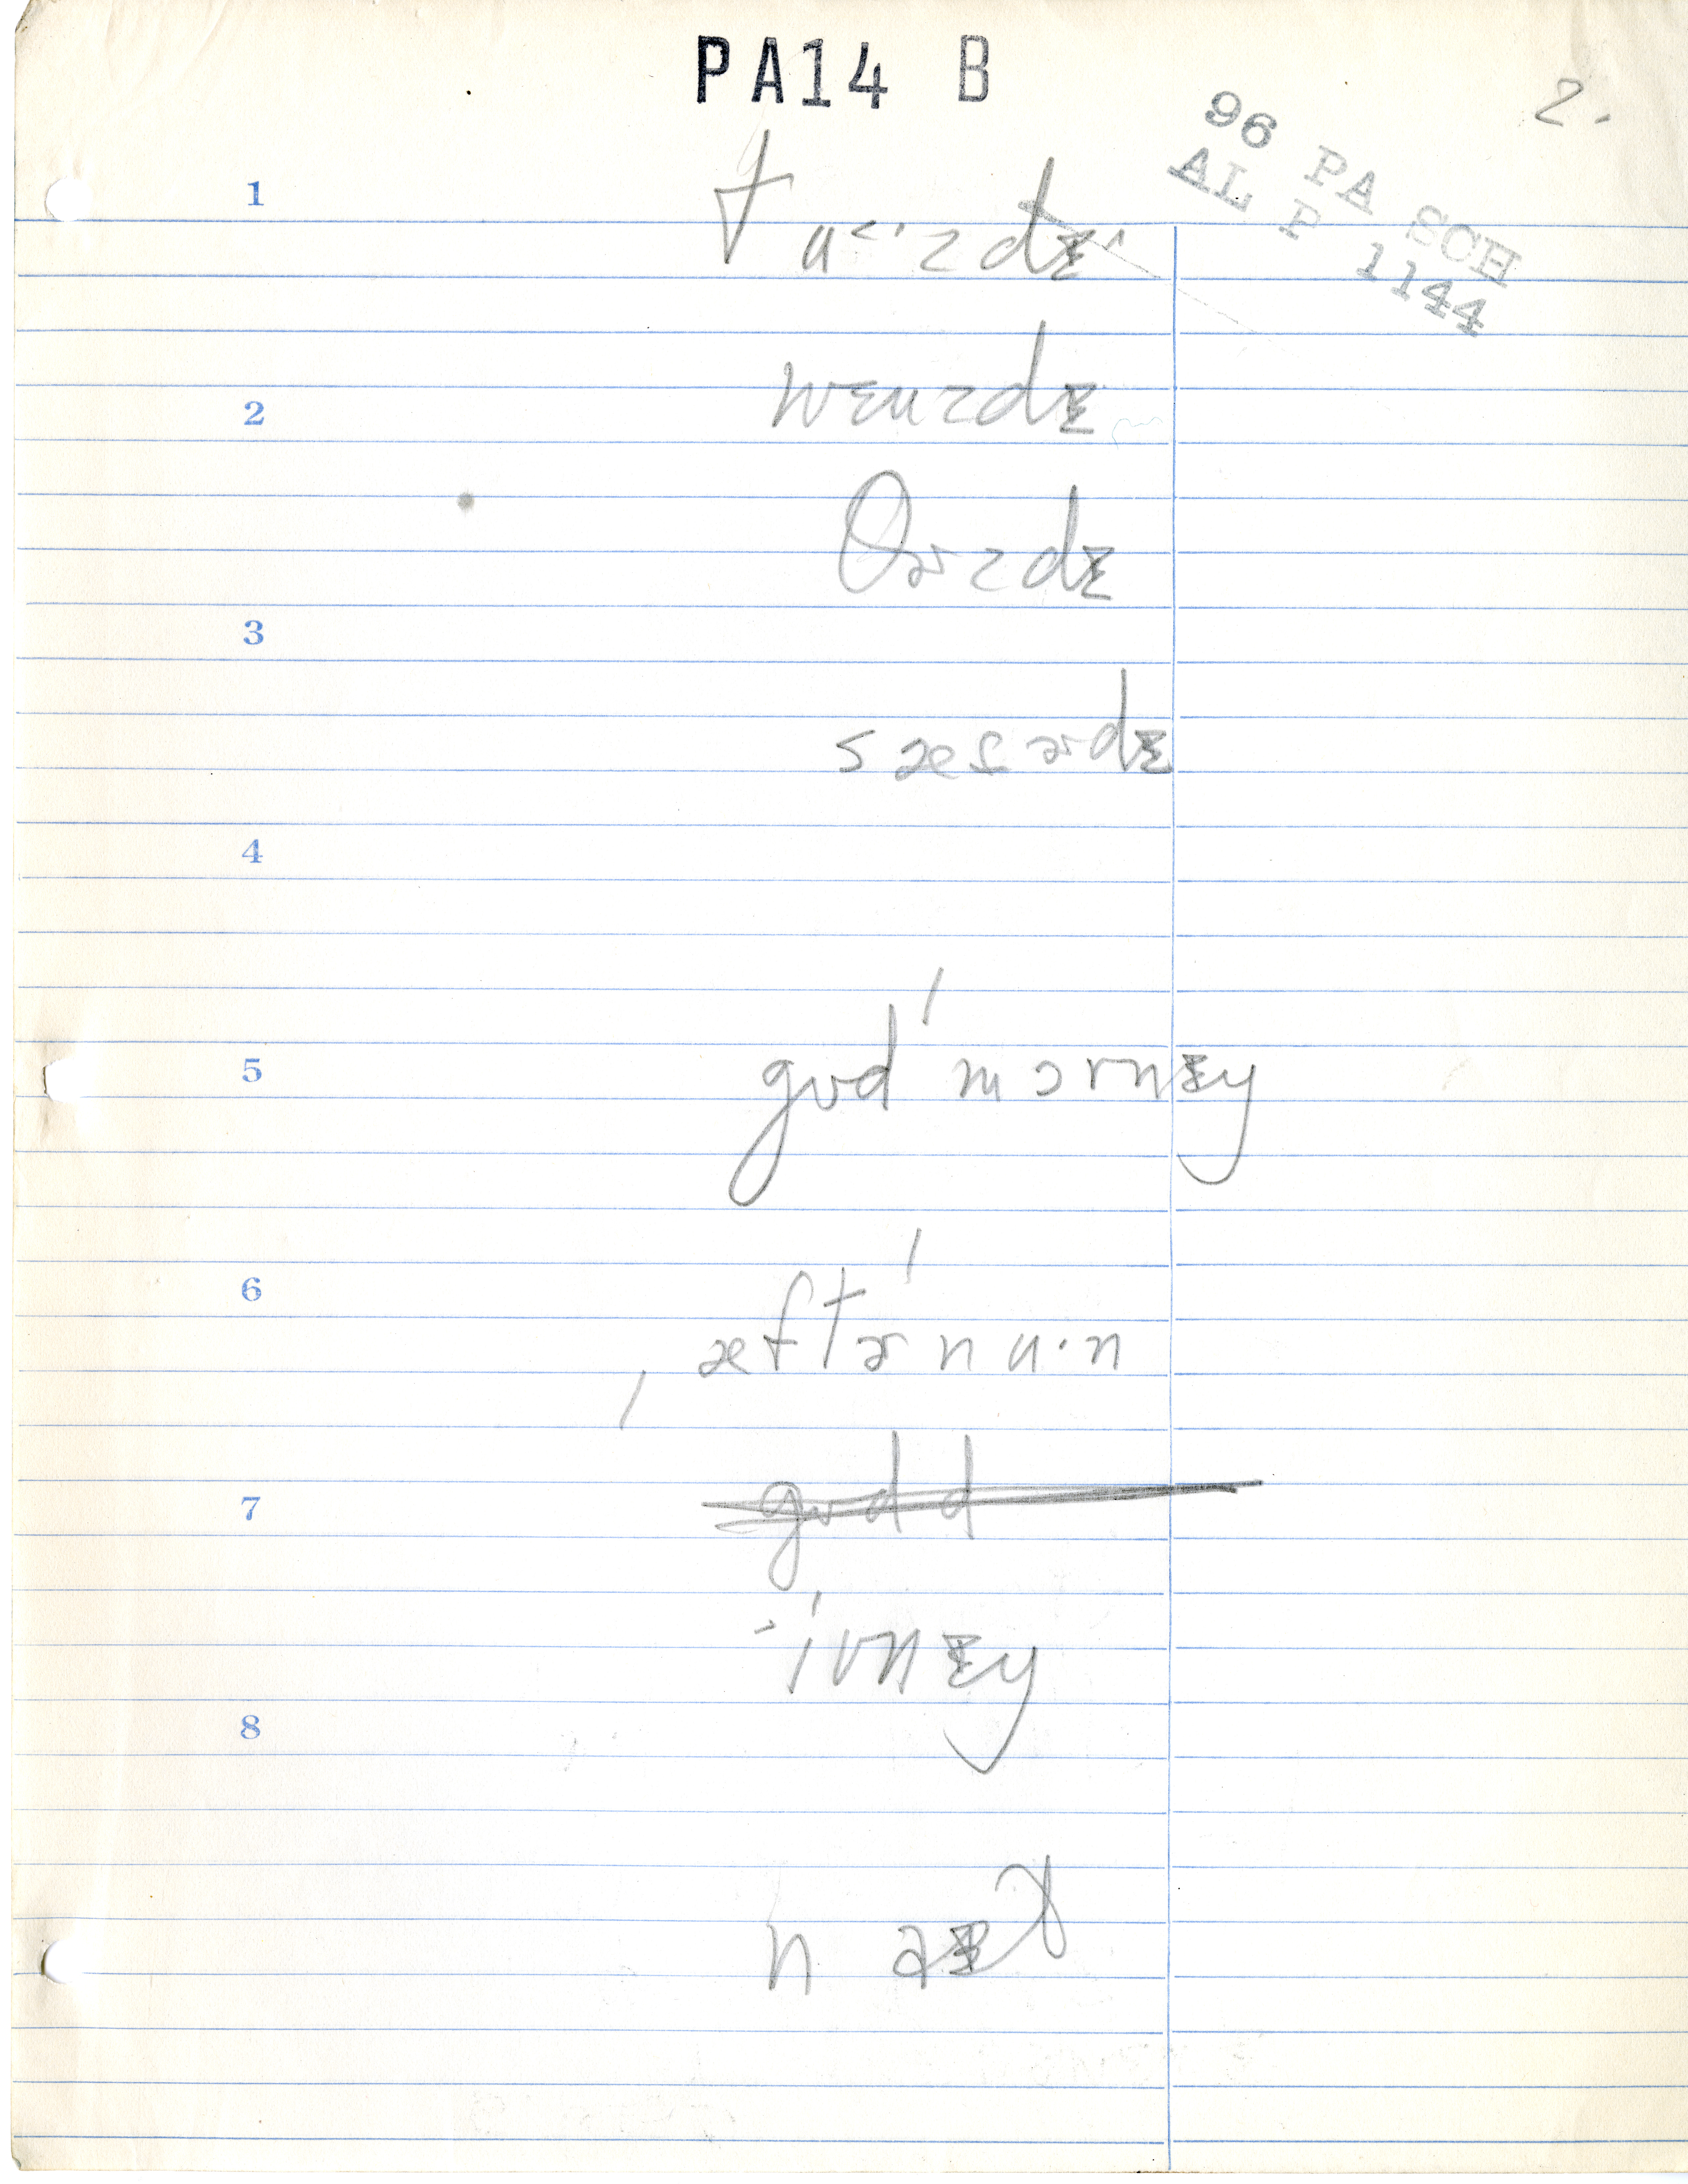 PA14 B
2.
96 PA SCH
AL P 1144
1
tu<·zdɪ^
2
wɛnzdɪ
θɚzdɪ
3
sæɾɚdɪ
4
5
gʊd ˈmɔrnɪŋ
6
ˌæftɚˈnu·n
7
gʊd d
ˈivnɪŋ
8